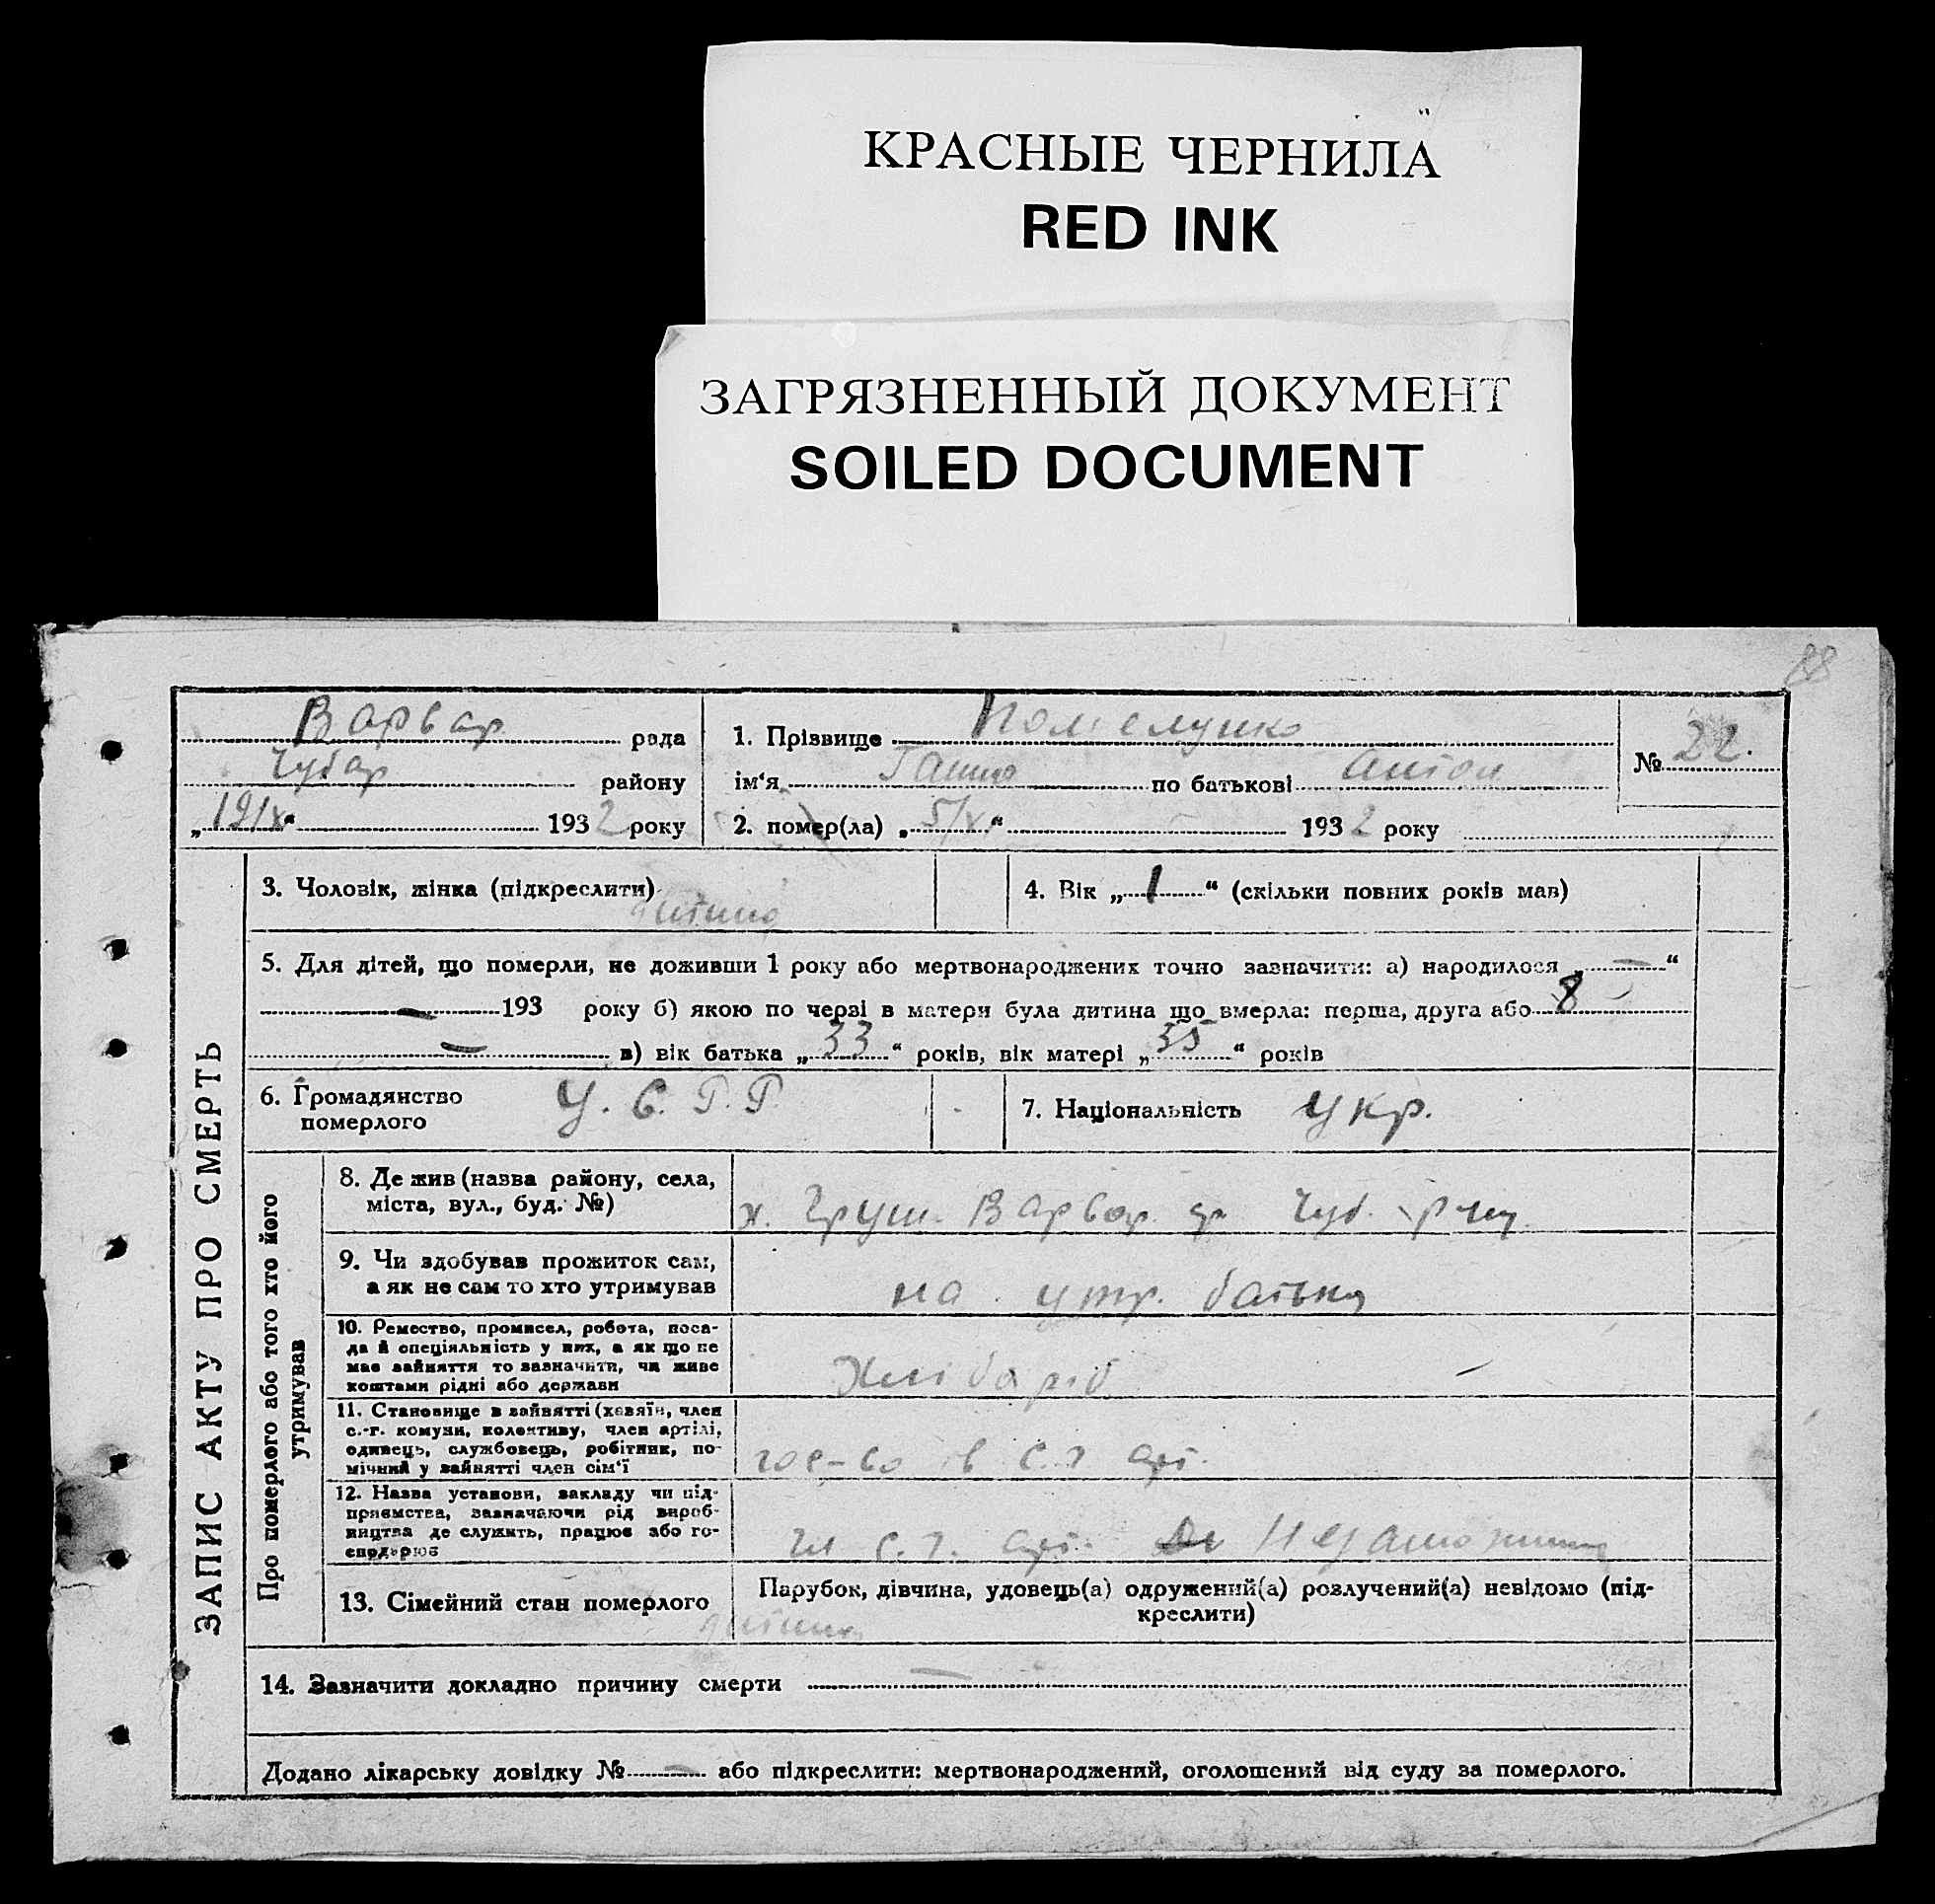 КРАСНЫЕ ЧЕРНИЛА
RED INK
ЗАГРЯЗНЕННЫЙ ДОКУМЕНТ
SOILED DOCUMENT
88
Варвар рада
Чубар району
„19/X“ 1932 року
1. Прізвище
ім‘я Ганна по батькові Антон
2. помер(ла) „5/X“ 1932 року
№ 22.
ЗАПИС АКТУ ПРО СМЕРТЬ
3. Чоловік, жінка (підкреслити)
дитина
4. Вік „1“ (скільки повних років мав)
5. Для дітей, що померли, не доживши 1 року або мертвонароджених точно зазначити: а) народилося „—“
— 193 року б) якою по черзі в матери була дитина що вмерла: перша, друга або 8
— в) вік батька „33“ років, вік матері „35“ років
6. Громадянство
померлого
У. С. Р. Р.
7. Національність Укр.
Про померлого або того хто його
утримував
8. Де жив (назва району, села,
міста, вул., буд. №)
х. Груш. Варвар Чуб. р-ну
9. Чи здобував прожиток сам,
а як не сам то хто утримував
на утр. батька
10. Ремество, промисел, робота, поса-
да й спеціяльність у них, а як що не
має зайняття то зазначити, чи живе
коштами рідні або держави
Хлібороб
11. Становище в зайнятті (хазяїн, член
с.-г. комуни, колективу, член артілі,
одинець, службовець, робітник, по-
мічний у зайнятті член сім‘ї
гос-во в с. г арт.
12. Назва установи, закладу чи під-
приємства, зазначаючи рід вироб-
ництва де служить, працює або го-
сподарює
чл с. г. арт. Незаможник
13. Сімейний стан померлого
дитина
Парубок, дівчина, удовець(а) одружений(а) розлучений(а) невідомо (під-
креслити)
14. Зазначити докладно причину смерти —
Додано лікарську довідку № — або підкреслити: мертвонароджений, оголошений від суду за померлого.